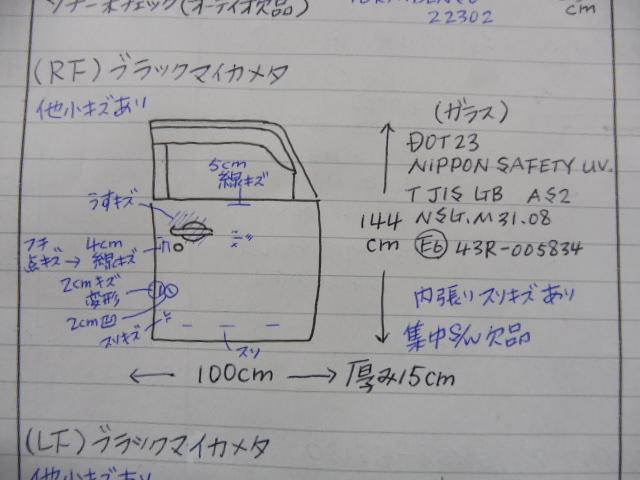 ソナー未チェック(オーディオ欠品)
22302
cm
(RF)ブラックマイカメタ
他小キズあり
5cm
線キズ
うすキズ
フチ
点キズ→
4cm
線キズ
2cmキズ
変形
2cm凹
スリキズ
スソ
100cm
厚み15cm
144
cm
(ガラス)
DOT23
NIPPON SAFETY UV.
T JIS LGB AS2
NSG.M31.08
E6 43R-005834
内張りスリキズあり
集中S/W欠品
(LF)ブラックマイカメタ
他小キズあり